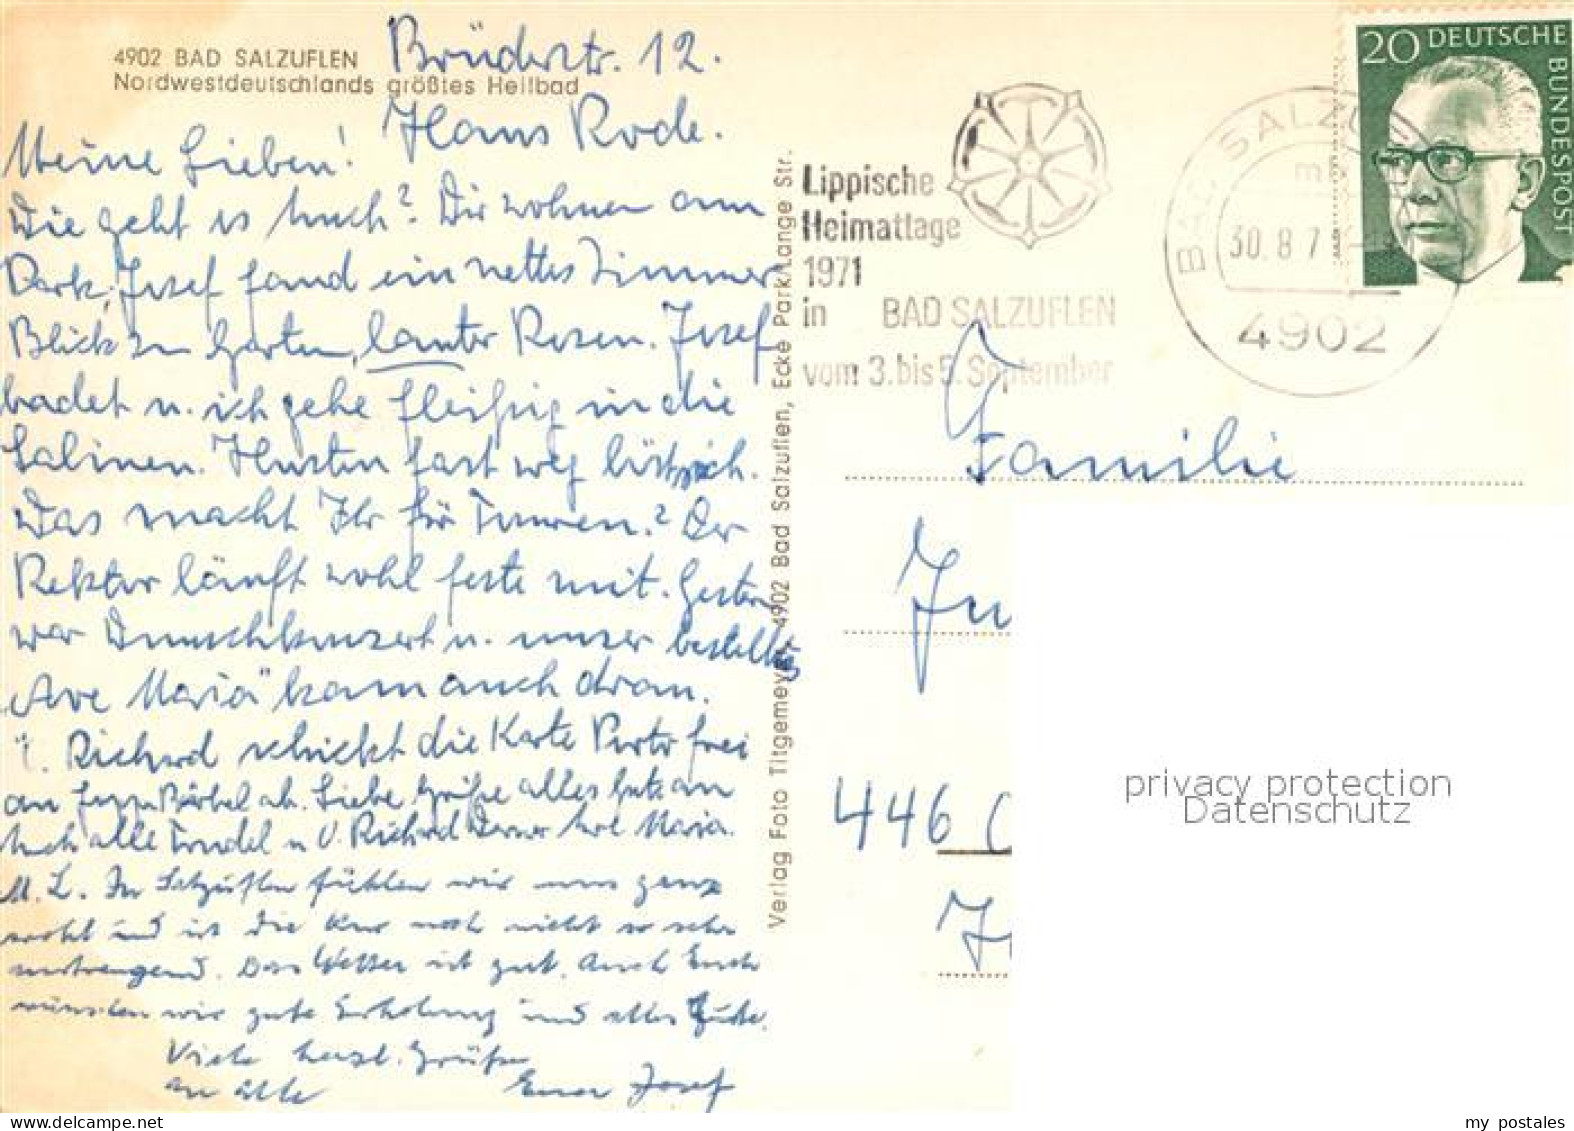 4902 BAD SALZUFLEN
Nordwestdeutschlands größtes Heilbad
Brüderstr. 12.
Hans Rode.
Meine Lieben!
Wie geht es Euch? Wir wohnen am
Park, Josef fand ein nettes Zimmer
Blick zu Garten, lauter Rosen. Josef
badet u. ich gehe fleißig in die
Salinen. Husten fast weg löst sich.
Was macht Ihr für Touren? Der
Rektor läuft wohl feste mit. Gestern
war Wunschkonzert u. unser bestelltes
"Ave Maria" kam auch dran.
Richard schickt die Karte Porto frei
an Bärbel ab. Liebe Grüße alles Gute an
Euch alle Trudel u O. Richard Eure Maria.
M. L. In Salzuflen fühlen wir uns ganz
wohl und ist die Kur noch nicht so sehr
anstrengend. Das Wetter ist gut. Auch Euch
wünschen wir gute Erholung und alles Gute.
Viele herzl. Grüße
an alle Euer Josef
Verlag Foto Titgemeyer, 4902 Bad Salzuflen, Ecke Park/Lange Str.
Lippische
Heimattage
1971
in BAD SALZUFLEN
vom 3. bis 5. September
BAD SALZUFLEN
30.8.7
4902
20 DEUTSCHE BUNDESPOST
Familie
Ju
446
privacy protection
Datenschutz
my postales